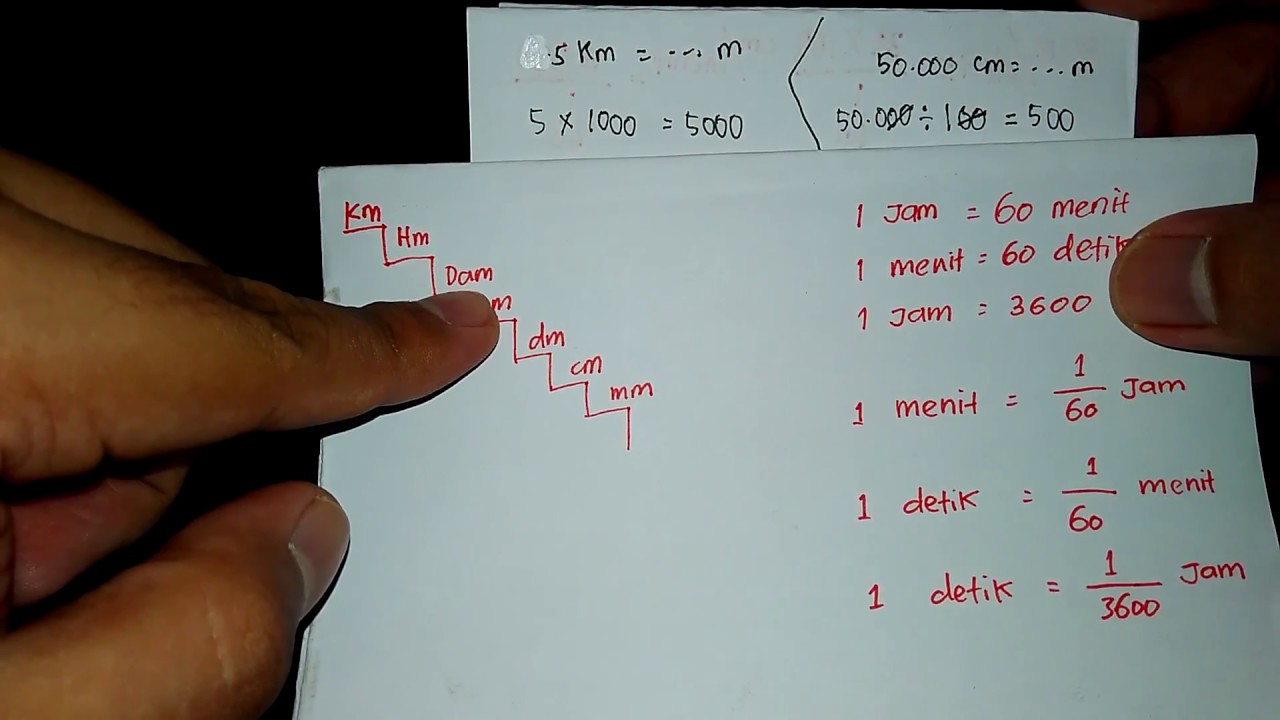 5 Km = .... m
50.000 cm = ... m
5 × 1000 = 5000
50.000 ÷ 100 = 500
Km
Hm
Dam
m
dm
cm
mm
1 Jam = 60 menit
1 menit = 60 detik
1 Jam = 3600
1 menit = 1/60 Jam
1 detik = 1/60 menit
1 detik = 1/3600 Jam